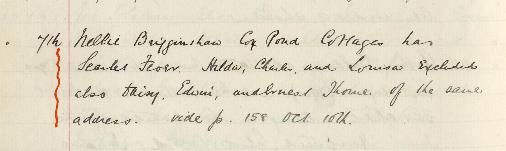 7th Nellie Brigginshaw Cox Pond Cottages has
Scarlet Fever. Hilda, Charles, and Louisa Excluded
also Daisy, Edwin, and Ernest Thorne. of the same
address. vide p. 158 Oct 10th.